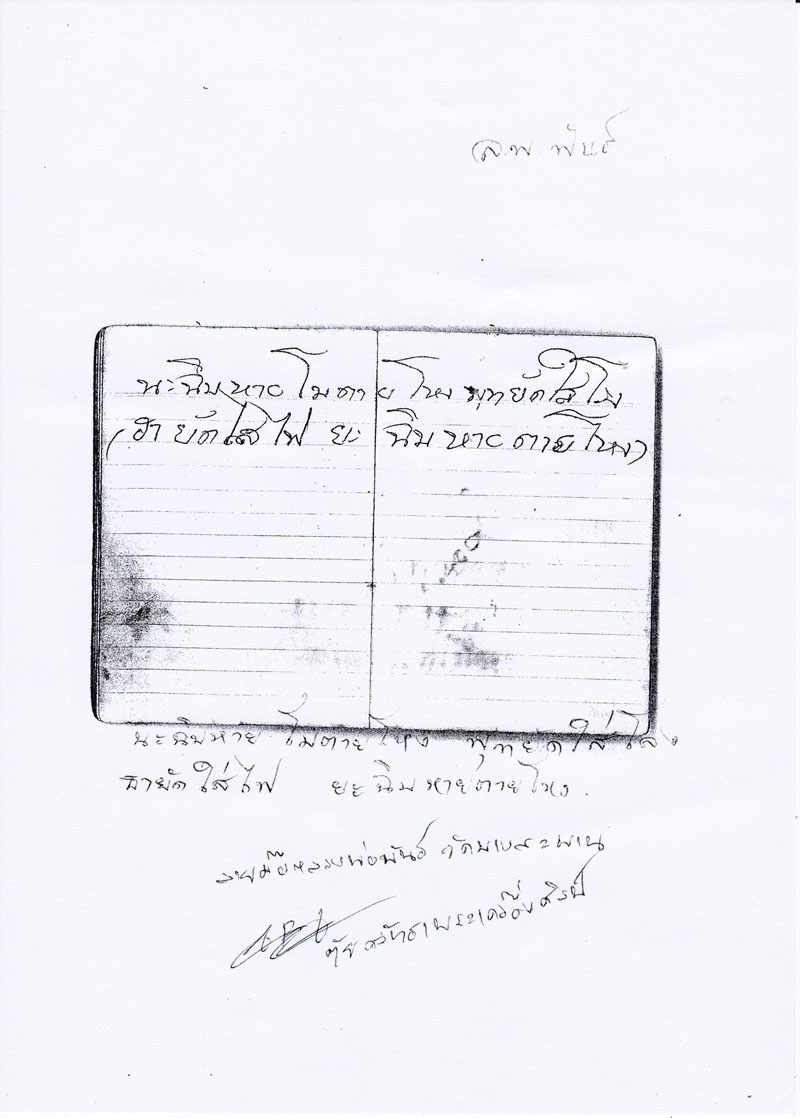 ล.พ พันธ์
นะฉิบหาย โมตาย โหง พุทยัดใส่โลง
(ธายัดใส่ไฟ ยะ ฉิบหายตายโหง)
นะฉิบหาย โมตายโหง พุทยัดใส่โลง
ธายัดใส่ไฟ ยะฉิบหายตายโหง.
ลายมือหลวงพ่อพันธ์ วัดบางสะพาน
พระเครื่อง